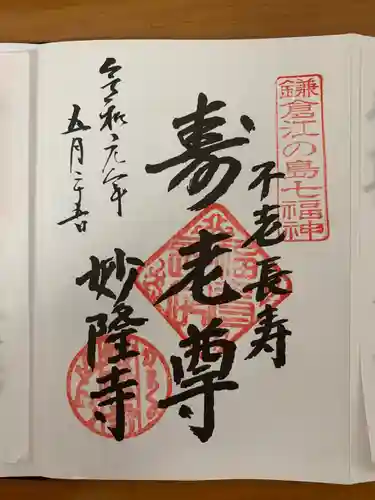 鎌倉江の島七福神
不老長寿
寿老尊
妙隆寺
令和元年
五月二十五日